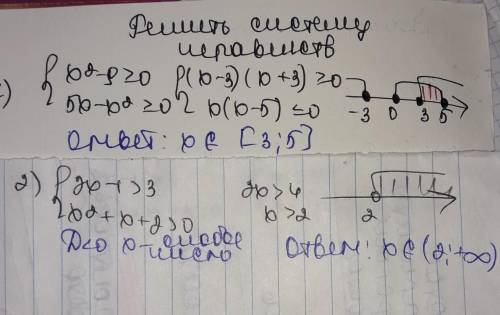 Решить систему
неравенств
{ x²-9≥0 { (x-3)(x+3)≥0
{ 5x-x²≥0 { x(x-5)≤0
-3 0 3 5
Ответ: x∈ [3;5]
2) { 2x-1>3 2x>4
{ x²+x+2>0 x>2 2
D<0 x-любое число Ответ: x∈(2;+∞)